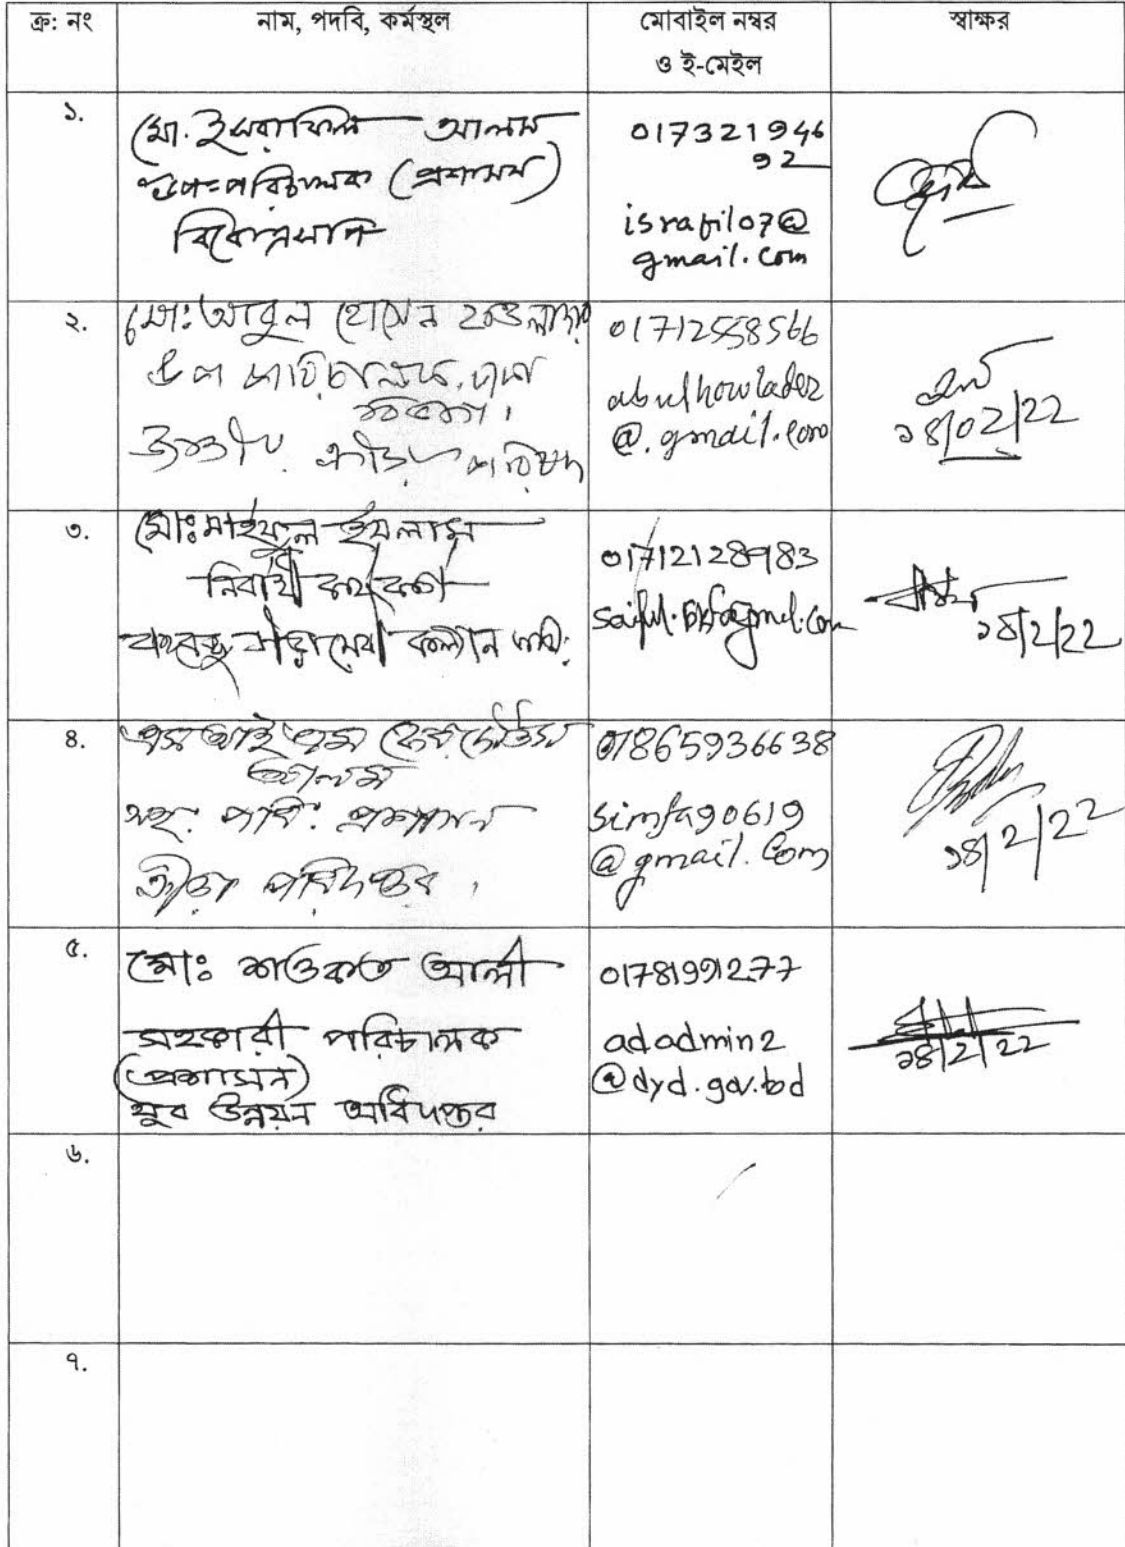 ক্র: নং
নাম, পদবি, কর্মস্থল
মোবাইল নম্বর
ও ই-মেইল
স্বাক্ষর
১.
মো. ইসরাফিল আলম
উপ-পরিচালক (প্রশাসন)
017321946
92
israfil07@
gmail.com
২.
মো: আবুল হোসেন হাওলাদার
উপ পরিচালক,
জাতীয় ক্রীড়া পরিষদ
01712558566
abulhowlader
@.gmail.com
১৪/02/22
৩.
মোঃ সাইফুল ইসলাম
নির্বাহী কর্মকর্তা
বঙ্গবন্ধু ক্রীড়াসেবী কল্যান
01712128983
১৪/2/22
৪.
এস আই এম ফেরদৌউস
আলম
সহ: পরি: প্রশাসন
ক্রীড়া পরিদপ্তর।
01865936638
simfa90619
@gmail.com
১৪/2/22
৫.
মোঃ শওকত আলী
সহকারী পরিচালক
(প্রশাসন)
যুব উন্নয়ন অধিদপ্তর
01781991277
adadmin2
@dyd.gov.bd
১৪/2/22
৬.
৭.